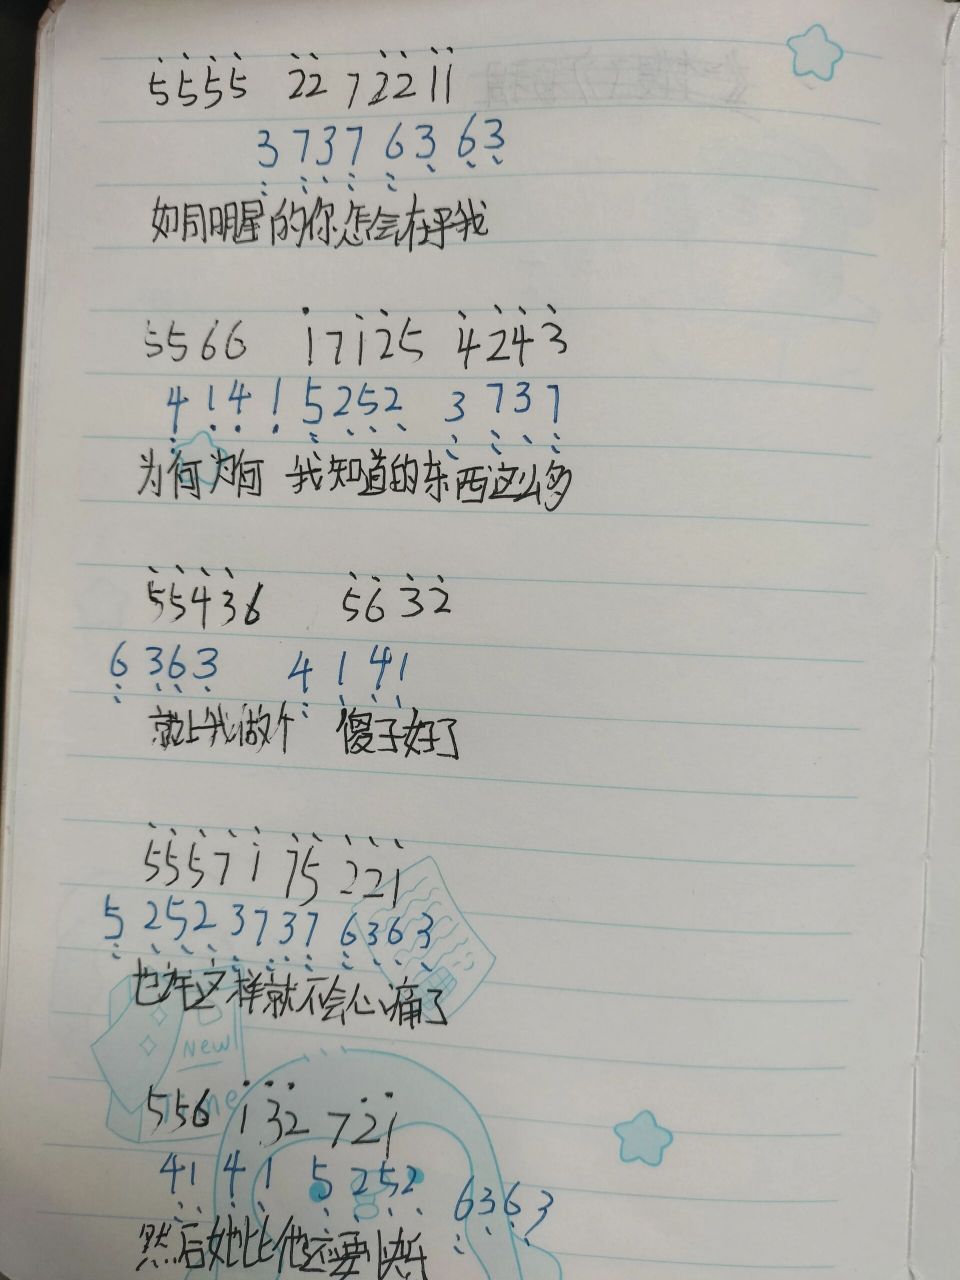 5555 22 7 22 11
3 737 63 63
如同明星的你怎会在乎我
5566 17125 4243
4 1 4 1 5252 3 737
为何为何 我知道的东西这么多
55436 5632
6 363 4 1 41
就让我做个 傻子好了
5557 1 75 221
5 252 3737 6363
也许这样就不会心痛了
New!
Time
556 132 721
41 41 5 252 6363
然后她比他还要快乐